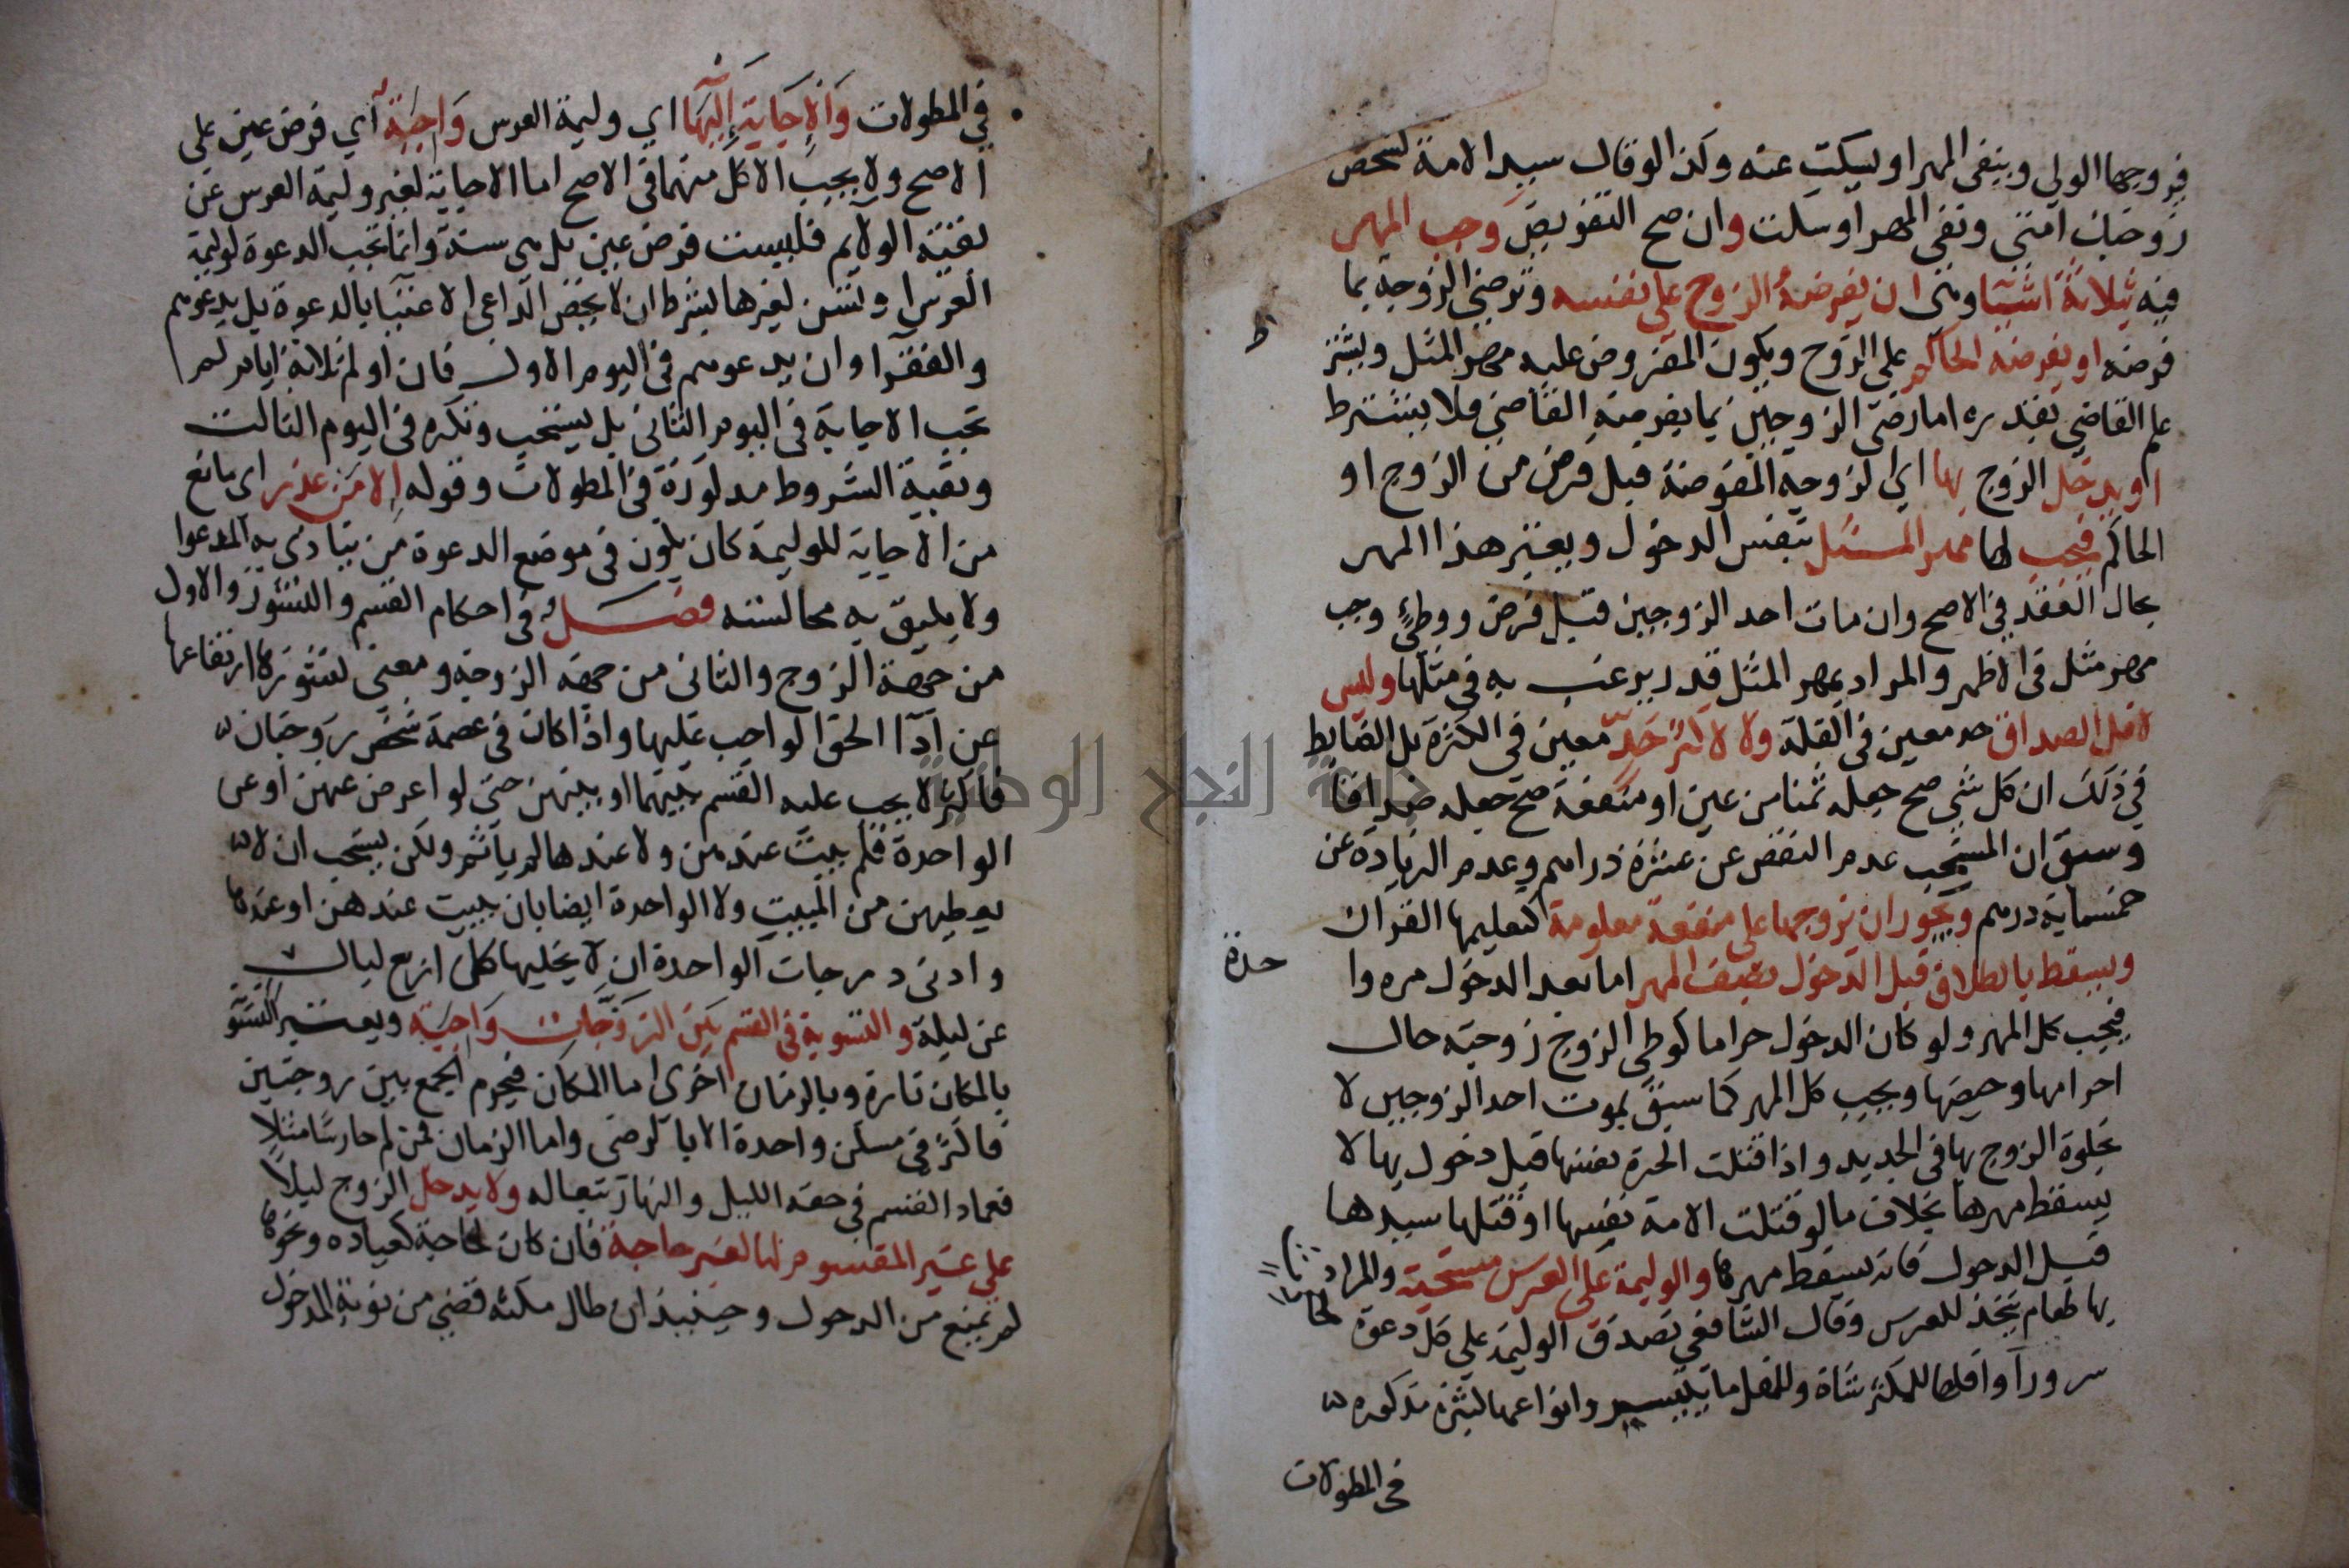 فيزوجها الولي وينفي المهر او يسكت عنه وكذا لو قال سيد الامة لشخص
زوجتك امتي ونفي المهر او سكت وان صح التفويض وجب المهر
فيه بثلاثة اشيا وهي ان يفرضه الزوج على نفسه وترضي الزوجة بما
فرضه او يفرضه الحاكم على الزوج ويكون المفروض عليه مهر المثل ويشتر
ط
علم القاضي بقدره اما رضى الزوجين بما يفرضه القاضي فلا يشترط
او يدخل الزوج بها اي الزوجة المفوضة قبل فرض من الزوج او
الحاكم فيجب لها مهر المثل بنفس الدخول ويعتبر هذا المهر
بحال العقد في الاصح وان مات احد الزوجين قبل فرض ووطئ وجب
مهر مثل في الاظهر والمراد بمهر المثل قدر يرغب به في مثلها وليس
لاقل الصداق حد معين في القلة ولا لاكثره حد معين في الكثرة بل الضابط
في ذلك ان كل شي صح جعله ثمنا من عين او منفعة صح جعله صداقا
وسبق ان المستحب عدم النقص عن عشرة دراهم وعدم الزيادة عن
خمسماية درهم ويجوز ان يتزوجها على منفعة معلومة كتعليمها القران
ويسقط بالطلاق قبل الدخول نصف المهر اما بعد الدخول مره وا
حدة
فيجب كل المهر ولو كان الدخول حراما كوطئ الزوج زوجته حال
احرامها وحيضها ويجب كل المهر كما سبق بموت احد الزوجين لا
بخلوة الزوج بها في الجديد واذا قتلت الحرة نفسها قبل دخول بها لا
يسقط مهرها بخلاف ما لو قتلت الامة نفسها او قتلها سيدها
قبل الدخول فانه يسقط مهرها والوليمة على العرس مستحبة والمراد
بها طعام يتخذ للعرس وقال الشافعي تصدق الوليمة على كل دعوة
سرور واقلها للمكثر شاة وللمقل ما تيسر وانواعها كثيرة مذكورة
في المطولات
في المطولات والاجابة اليها اي وليمة العرس واجبة اي فرض عين على
الاصح ولا يجب الاكل منها في الاصح اما الاجابة لغير وليمة العرس من
بقية الولايم فليست فرض عين بل هي سنة وانما تجب الدعوة لوليمة
العرس او تسن لغيرها بشرط ان لا يخص الداعي الاغنيا بالدعوة بل يدعوهم
والفقرا وان يدعوهم في اليوم الاول فان اولم ثلاثة ايام لم
تجب الاجابة في اليوم الثاني بل يستحب وتكره في اليوم الثالث
وبقية الشروط مذكورة في المطولات وقوله الا من عذر اي مانع
من الاجابة للوليمة كان يكون في موضع الدعوة من يتاذى به المدعوا
ولا يليق به مجالسته فصل في احكام القسم والنشوز والاول
من جهة الزوج والثاني من جهة الزوجة ومعني نشوزها ارتفاعها
عن ادا الحق الواجب عليها واذا كان في عصمة شخص زوجتان
فاكثر لا يجب عليه القسم بينهما او بينهن حتى لو اعرض عنهن او عن
الواحدة فلم يبت عندهن ولا عندها لم ياثم ولكن يستحب ان لا
يعطلهن من المبيت ولا الواحدة ايضا بان يبيت عندهن او عندها
وادنى درجات الواحدة ان لا يخليها كل اربع ليال
عن ليلة والتسوية في القسم بين الزوجات واجبة ويعتبر التسو
بالمكان تارة وبالزمان اخرى اما المكان فيحرم الجمع بين زوجتين
فاكثر في مسكن واحدة الا بالرضى واما الزمان فمن لم حارسا مثلا
فعماد القسم في حقه الليل والنهار تبعا له ولا يدخل الزوج ليلا
على غير المقسوم لها لغير حاجة فان كان لحاجة كعيادة ونحوها
لم يمنع من الدخول وحينيذ ان طال مكثه قضي من نوبة المدخول